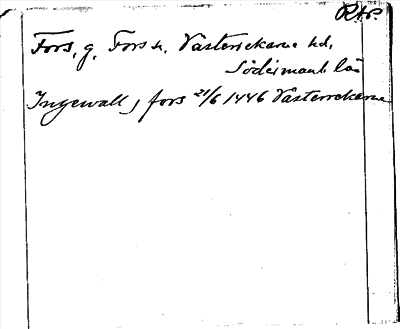 Rtp.
Fors, g. Fors sn. Västerrekarne hd,
Södermanl. län
Ingewall j fors 21/6 1446 Västerrekarne